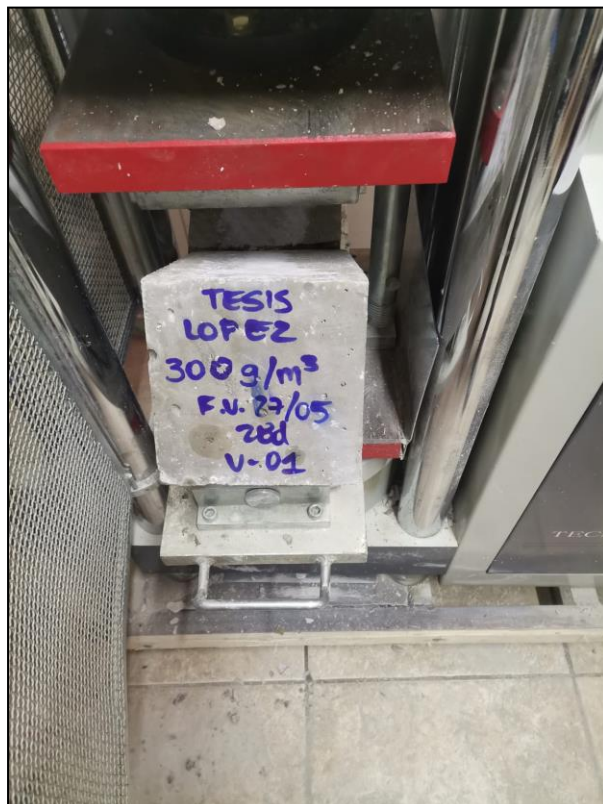 TESIS
LOPEZ
300 g/m³
F.V. 27/05
28d
V-01
TEC